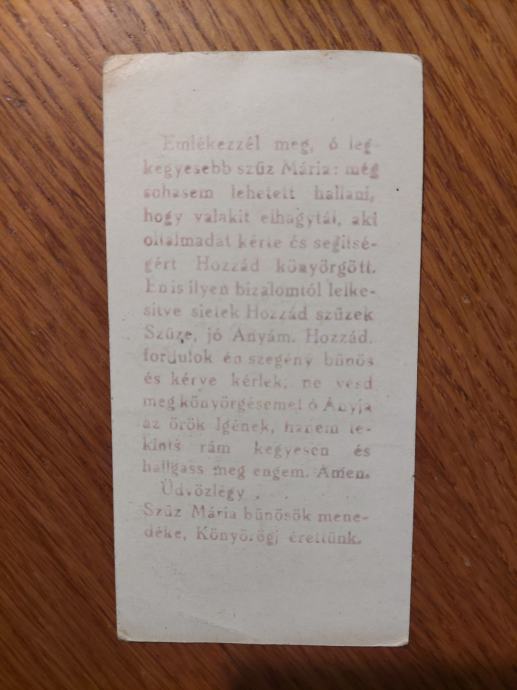 Emlékezzél meg, ó leg-
kegyesebb szűz Mária: még
sohasem lehetett hallani,
hogy valakit elhagytál, aki
oltalmadat kérte és segitsé-
gért Hozzád könyörgött.
Én is ilyen bizalomtól lelke-
sitve sietek Hozzád szűzek
Szűze, jó Anyám. Hozzád.
fordulok én szegény bűnös
és kérve kérlek, ne vesd
meg könyörgésemet ó Anyja
az örök Igének, hanem te-
kints rám kegyesen és
hallgass meg engem. Ámen.
Üdvözlégy
Szűz Mária bűnösök mene-
déke, Könyörögj érettünk.